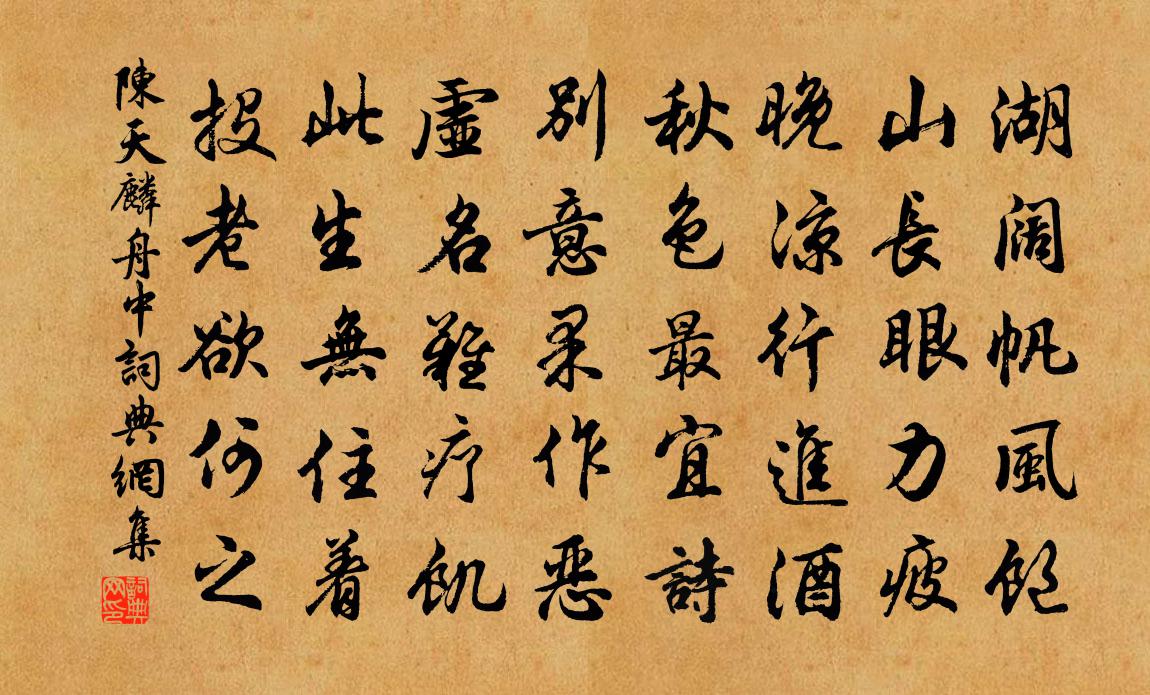 湖阔帆風飽
山長眼力疲
晚凉行進酒
秋色最宜詩
别意柔作恶
虛名難疗飢
此生無住着
投老欲何之
陳天麟舟中詞典網集
詞典网印